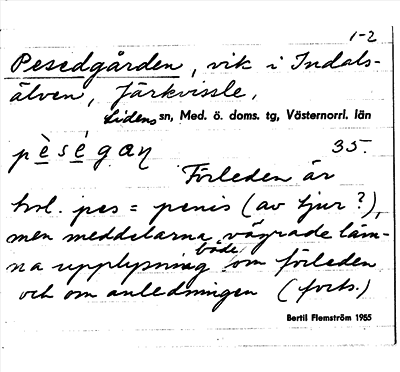 1-2
Pesedgården, vik i Indals-
älven, Järkvissle,
Lidens sn, Med. ö. doms. tg, Västernorrl. län
pèségaɳ 35.
Förleden är
trol. pes = penis (av tjur?),
men meddelarna vägrade läm-
na upplysning både om förleden
och om anledningen (forts.)
Bertil Flemström 1955